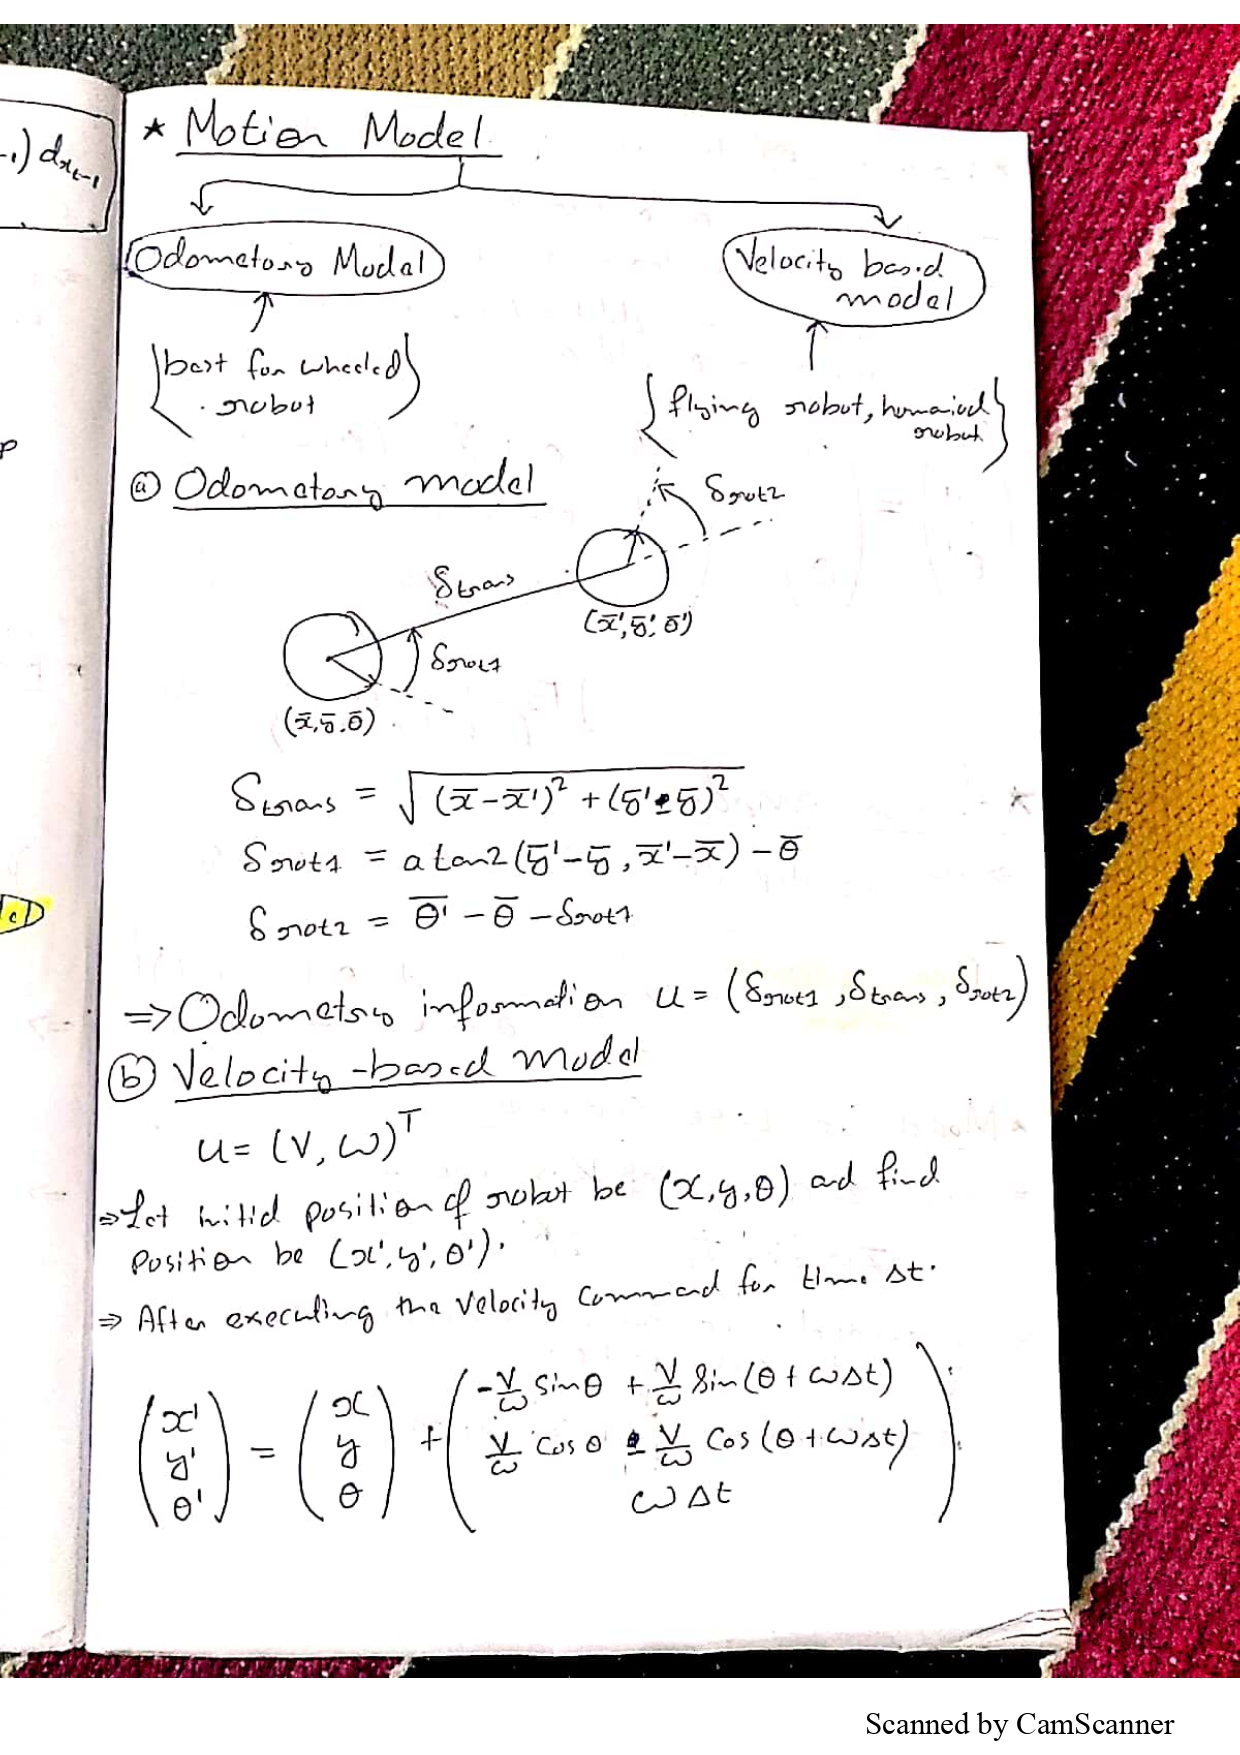 -1) dx_{t-1}
★ Motion Model
Odometory Model
Velocity based
model
{best for wheeled
robot}
{flying robot, homaiod
robot}
ⓐ Odometory model
δrot2
δtrans
(x̄', ȳ', θ̄')
δrot1
(x̄, ȳ, θ̄)
δtrans = √((x̄ - x̄')² + (ȳ' - ȳ)²)
δrot1 = atan2(ȳ' - ȳ, x̄' - x̄) - θ̄
δrot2 = θ̄' - θ̄ - δrot1
⇒ Odometry information u = (δrot1, δtrans, δrot2)
ⓑ Velocity-based model
u = (v, ω)^T
⇒ Let initial position of robot be (x, y, θ) and find
position be (x', y', θ').
⇒ After executing the velocity command for time Δt.
(x' y' θ') = (x y θ) + (-v/ω sinθ + v/ω sin(θ + ωΔt)
v/ω cosθ - v/ω cos(θ + ωΔt)
ωΔt)
Scanned by CamScanner